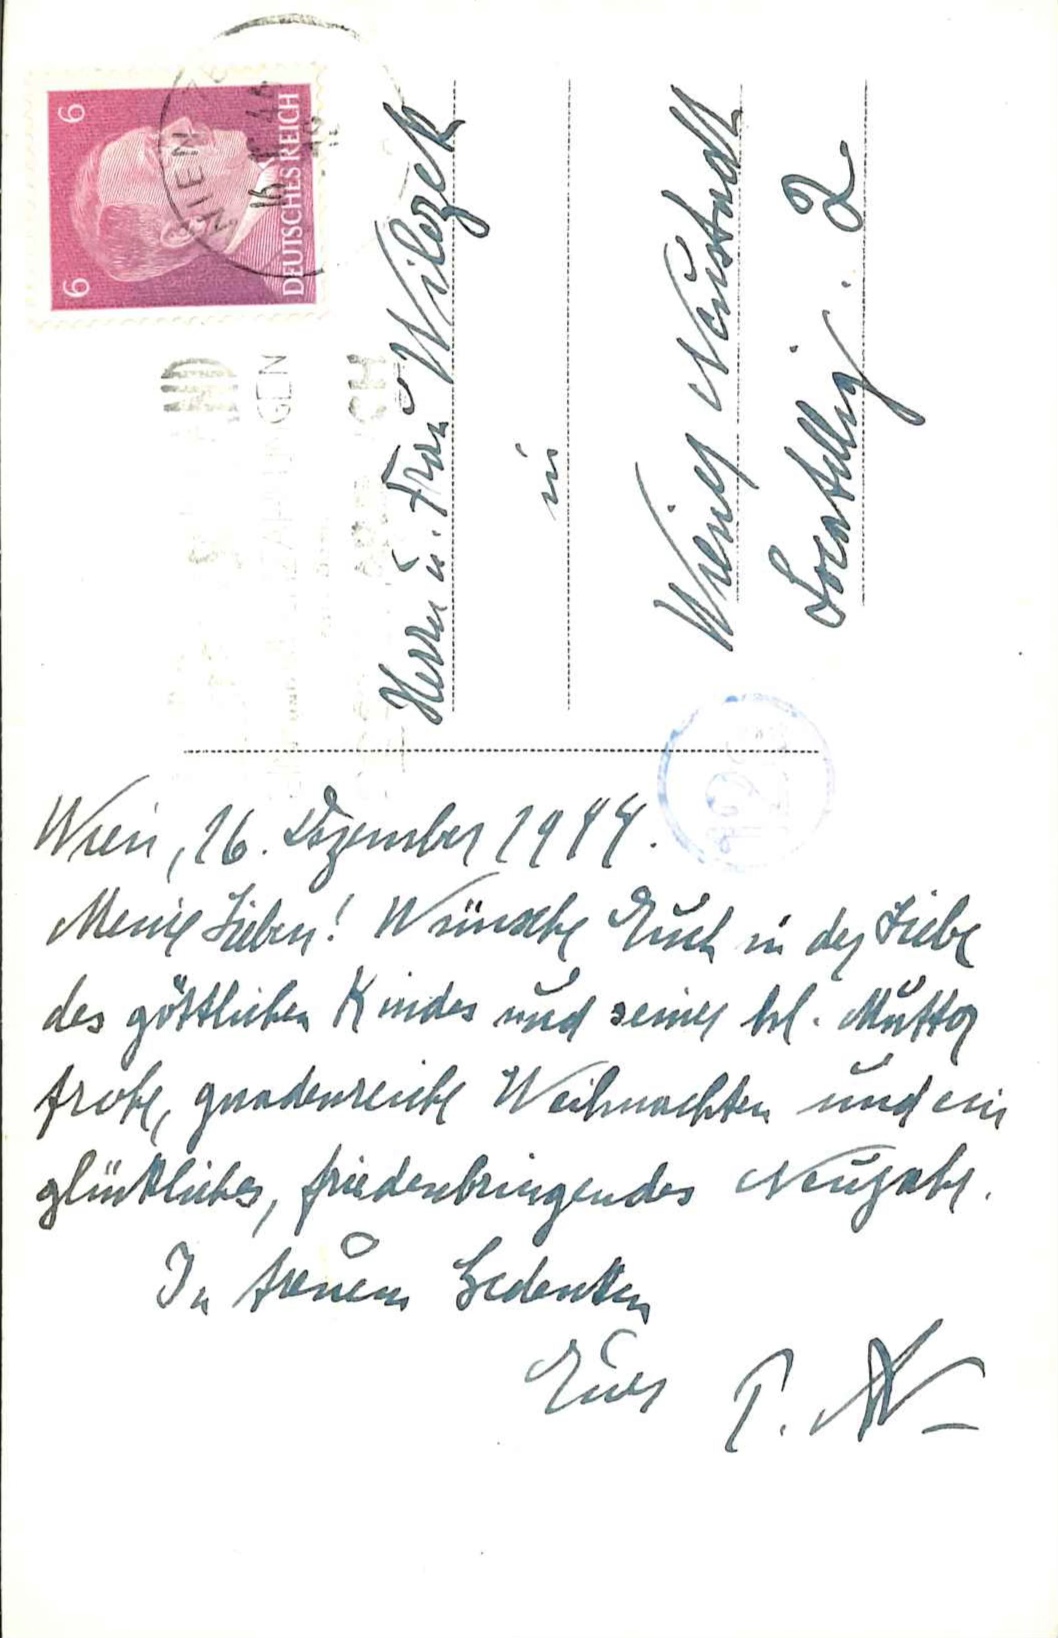 6
6
DEUTSCHES REICH
WIEN
16
Herrn u. Frau Wilczek
in
Wiener Neustadt
2
Wien, 16. Dezember 1944.
Meine Lieben! Wünsche Euch in der Liebe
des göttlichen Kindes und seiner hl. Mutter
frohe, gnadenreiche Weihnachten und ein
glückliches, friedenbringendes Neujahr.
In treuem Gedenken
Euer P.